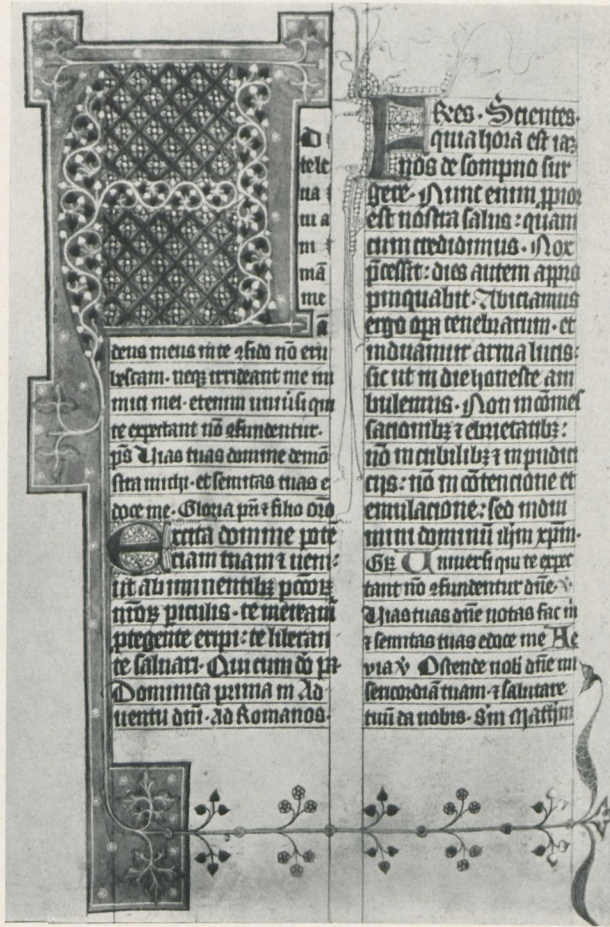 D
te le
na
m a
m
mā
me
a
deus meus in te ꝯfido nō eru
bescam. neqꝫ irrideant me ini
mici mei. etenim uniūsi qui
te expectant nō ꝯfundentur.
p̄s Uias tuas domine demō
stra michi. et semitas tuas e
doce me. Gloria pr̄i ⁊ filio
Excita domine potē
ciam tuam ⁊ ueni:
ut ab iminentibꝫ
nr̄oꝝ piculis. te mereamᷣ
ꝓtegente eripi: te liberan
te saluari. Qui cum do pr̄
Dominica prima in Ad
uentu dn̄i. ad Romanos.
FRes. Scientes.
quia hora est iaꝫ
nos de sompno sur
gere. Nunc enim ꝓpior
est nostra salus: quam
cum credidimus. Nox
p̄cessit: dies autem appro
pinquabit. Abiciamus
ergo oꝑa tenebrarum. et
induamur arma lucis:
sic ut in die honeste am
bulemus. Non in cōmes
sacionibꝫ ⁊ ebrietatibꝫ:
nō in cubilibꝫ ⁊ inpudici
cijs: nō in cōtencione et
emulacione: sed indui
mini dominū ihm̄ xp̄m.
Gr̄ Uniuersi qui te expec
tant nō ꝯfundentur dn̄e. v̄
Uias tuas dn̄e notas fac m̄
⁊ semitas tuas edoce me Ae
uia v̄ Ostende nob̄ dn̄e mi
sericordiā tuam. ⁊ salutare
tuū da nobis. Sm̄ Mattm̄